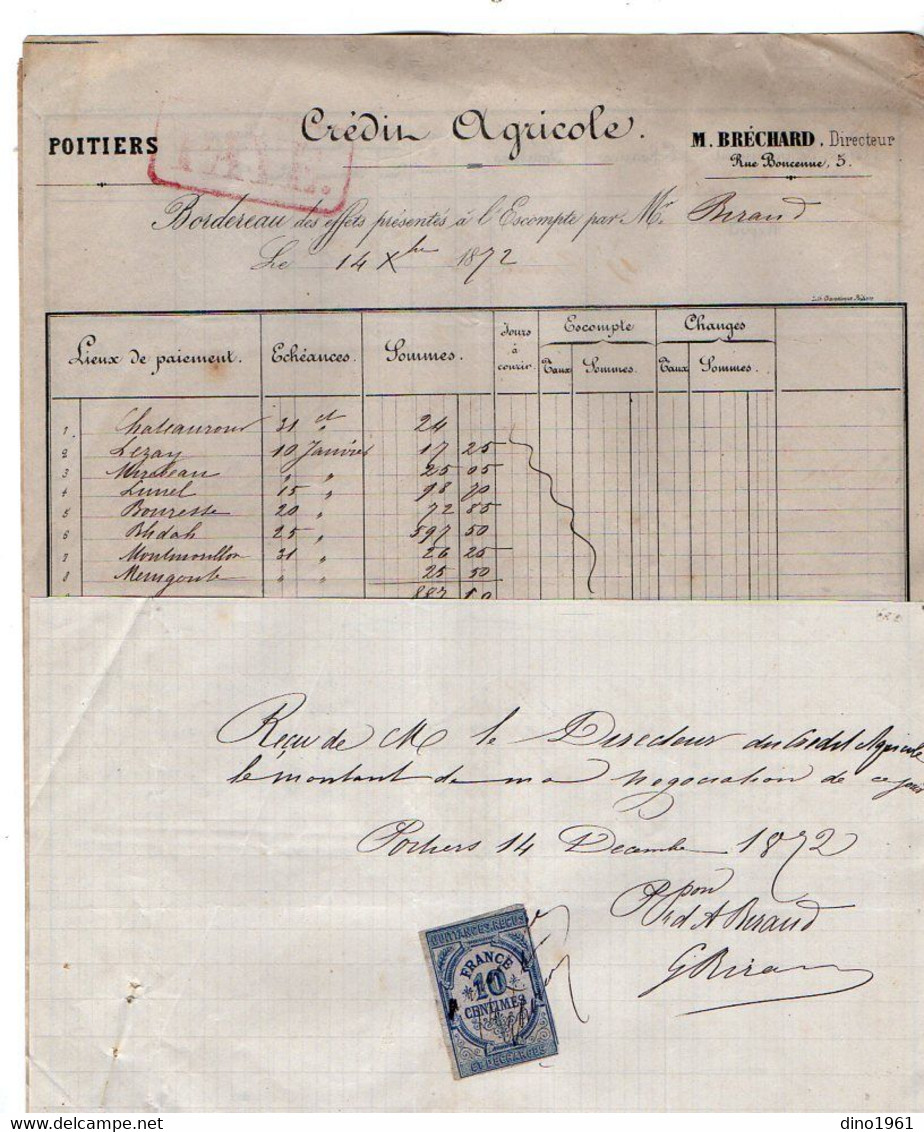 Crédit Agricole.
POITIERS
PAYÉ.
M. BRÉCHARD, Directeur
Rue Boncenne, 5.
Bordereau des effets présentés à l'Escompte par Mr Beraud
Le 14 Xbre 1872
Lieux de paiement. Echéances. Sommes. Jours à courir. Escompte Taux Sommes. Changes Taux Sommes.
1 Chateauroux 31 ct 24
2 Lezay 10 Janvier 17 25
3 Mirebeau " " 25 05
4 Lunel 15 " 98 70
5 Bouresse 20 " 72 85
6 Blidah 25 " 597 50
7 Montmorillon 31 " 26 25
8 Menigoute " " 25 50
887 10
Reçu de M le Directeur du Credit Agricole
le montant de ma negociation de ce jour
Poitiers 14 Decembre 1872
pon
A Beraud
G Beraud
QUITTANCES, REÇUS
FRANCE
10
CENTIMES
ET DECHARGES
dino1961